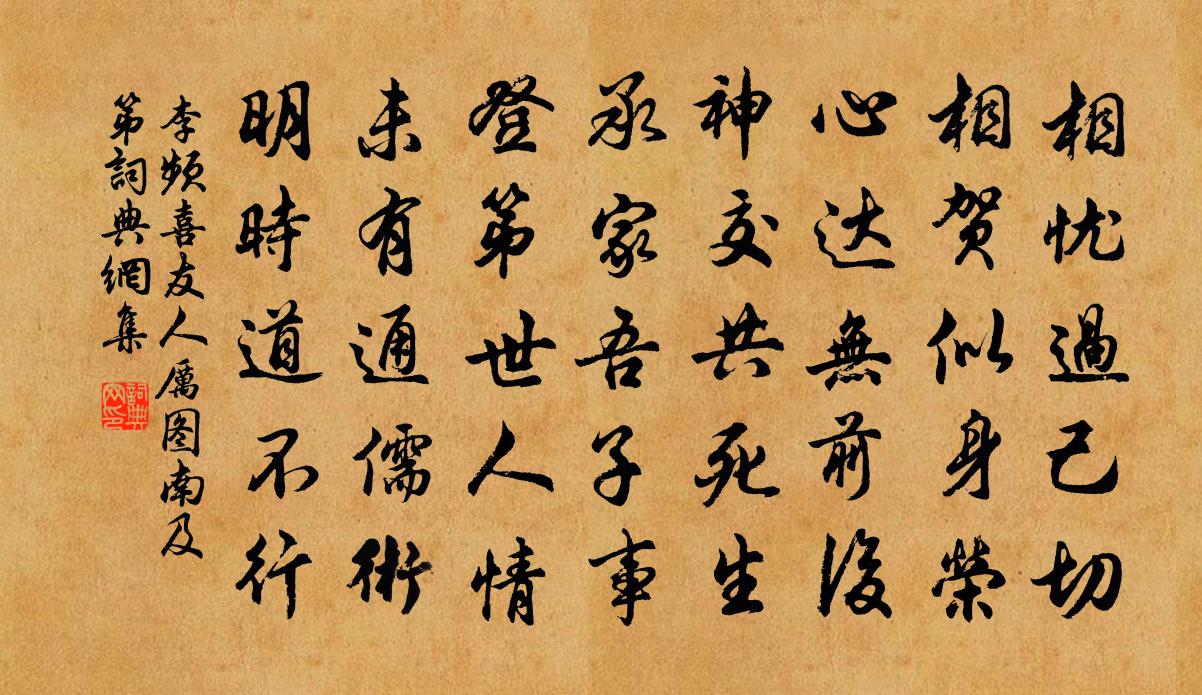 相忧過己切
相贺似身榮
心达無前後
神交共死生
承家吾子事
登第世人情
未有通儒術
明時道不行
李頻喜友人厲图南及
第詞典網集
詞典
网印